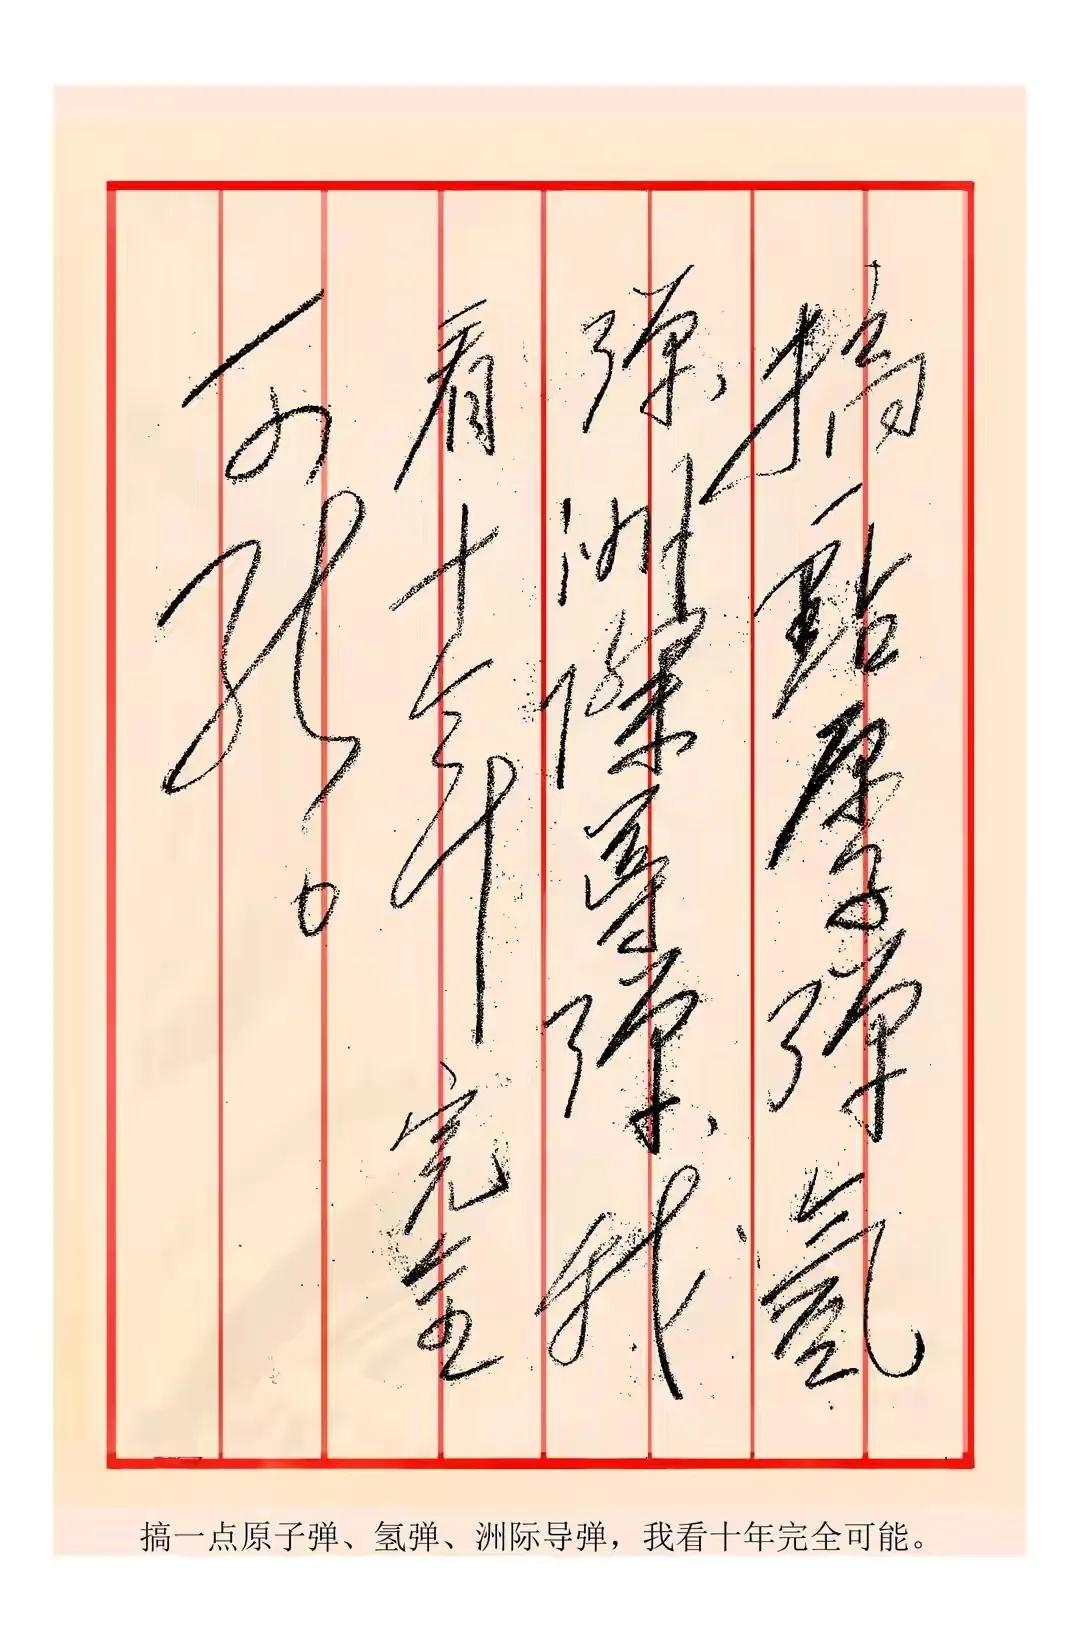 搞一點原子弹氫
弹、洲際導弹、我
看十年完全
可能。
搞一点原子弹、氢弹、洲际导弹，我看十年完全可能。